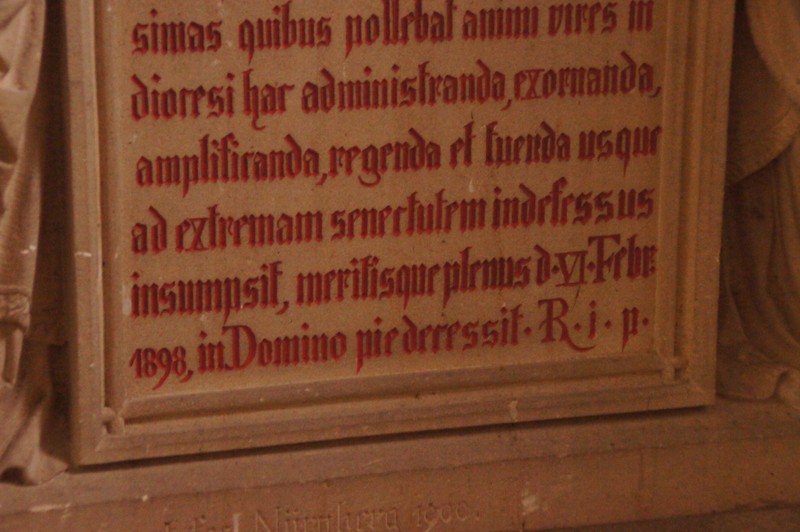 simas quibus pollebat animi vires in
diocesi hac administranda, exornanda,
amplificanda, regenda et tuenda usque
ad extremam senectutem indefessus
insumpsit, meritisque plenus d. VI. Febr.
1898, in Domino pie decessit. R. i. p.
fec. Nürnberg 1900.